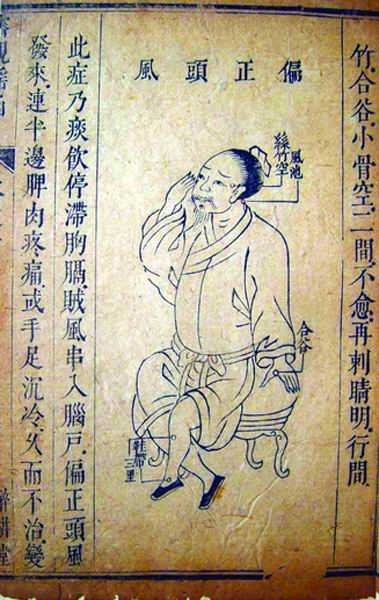 竹,合谷,小骨空,二間,不愈,再刺睛明,行間
偏正頭風
風池
絲竹空
合谷
三里
此症乃痰飲停滯胸膈,賊風串入腦戶,偏正頭風
發來,連半邊脾肉疼痛,或手足沉冷,久而不治,變